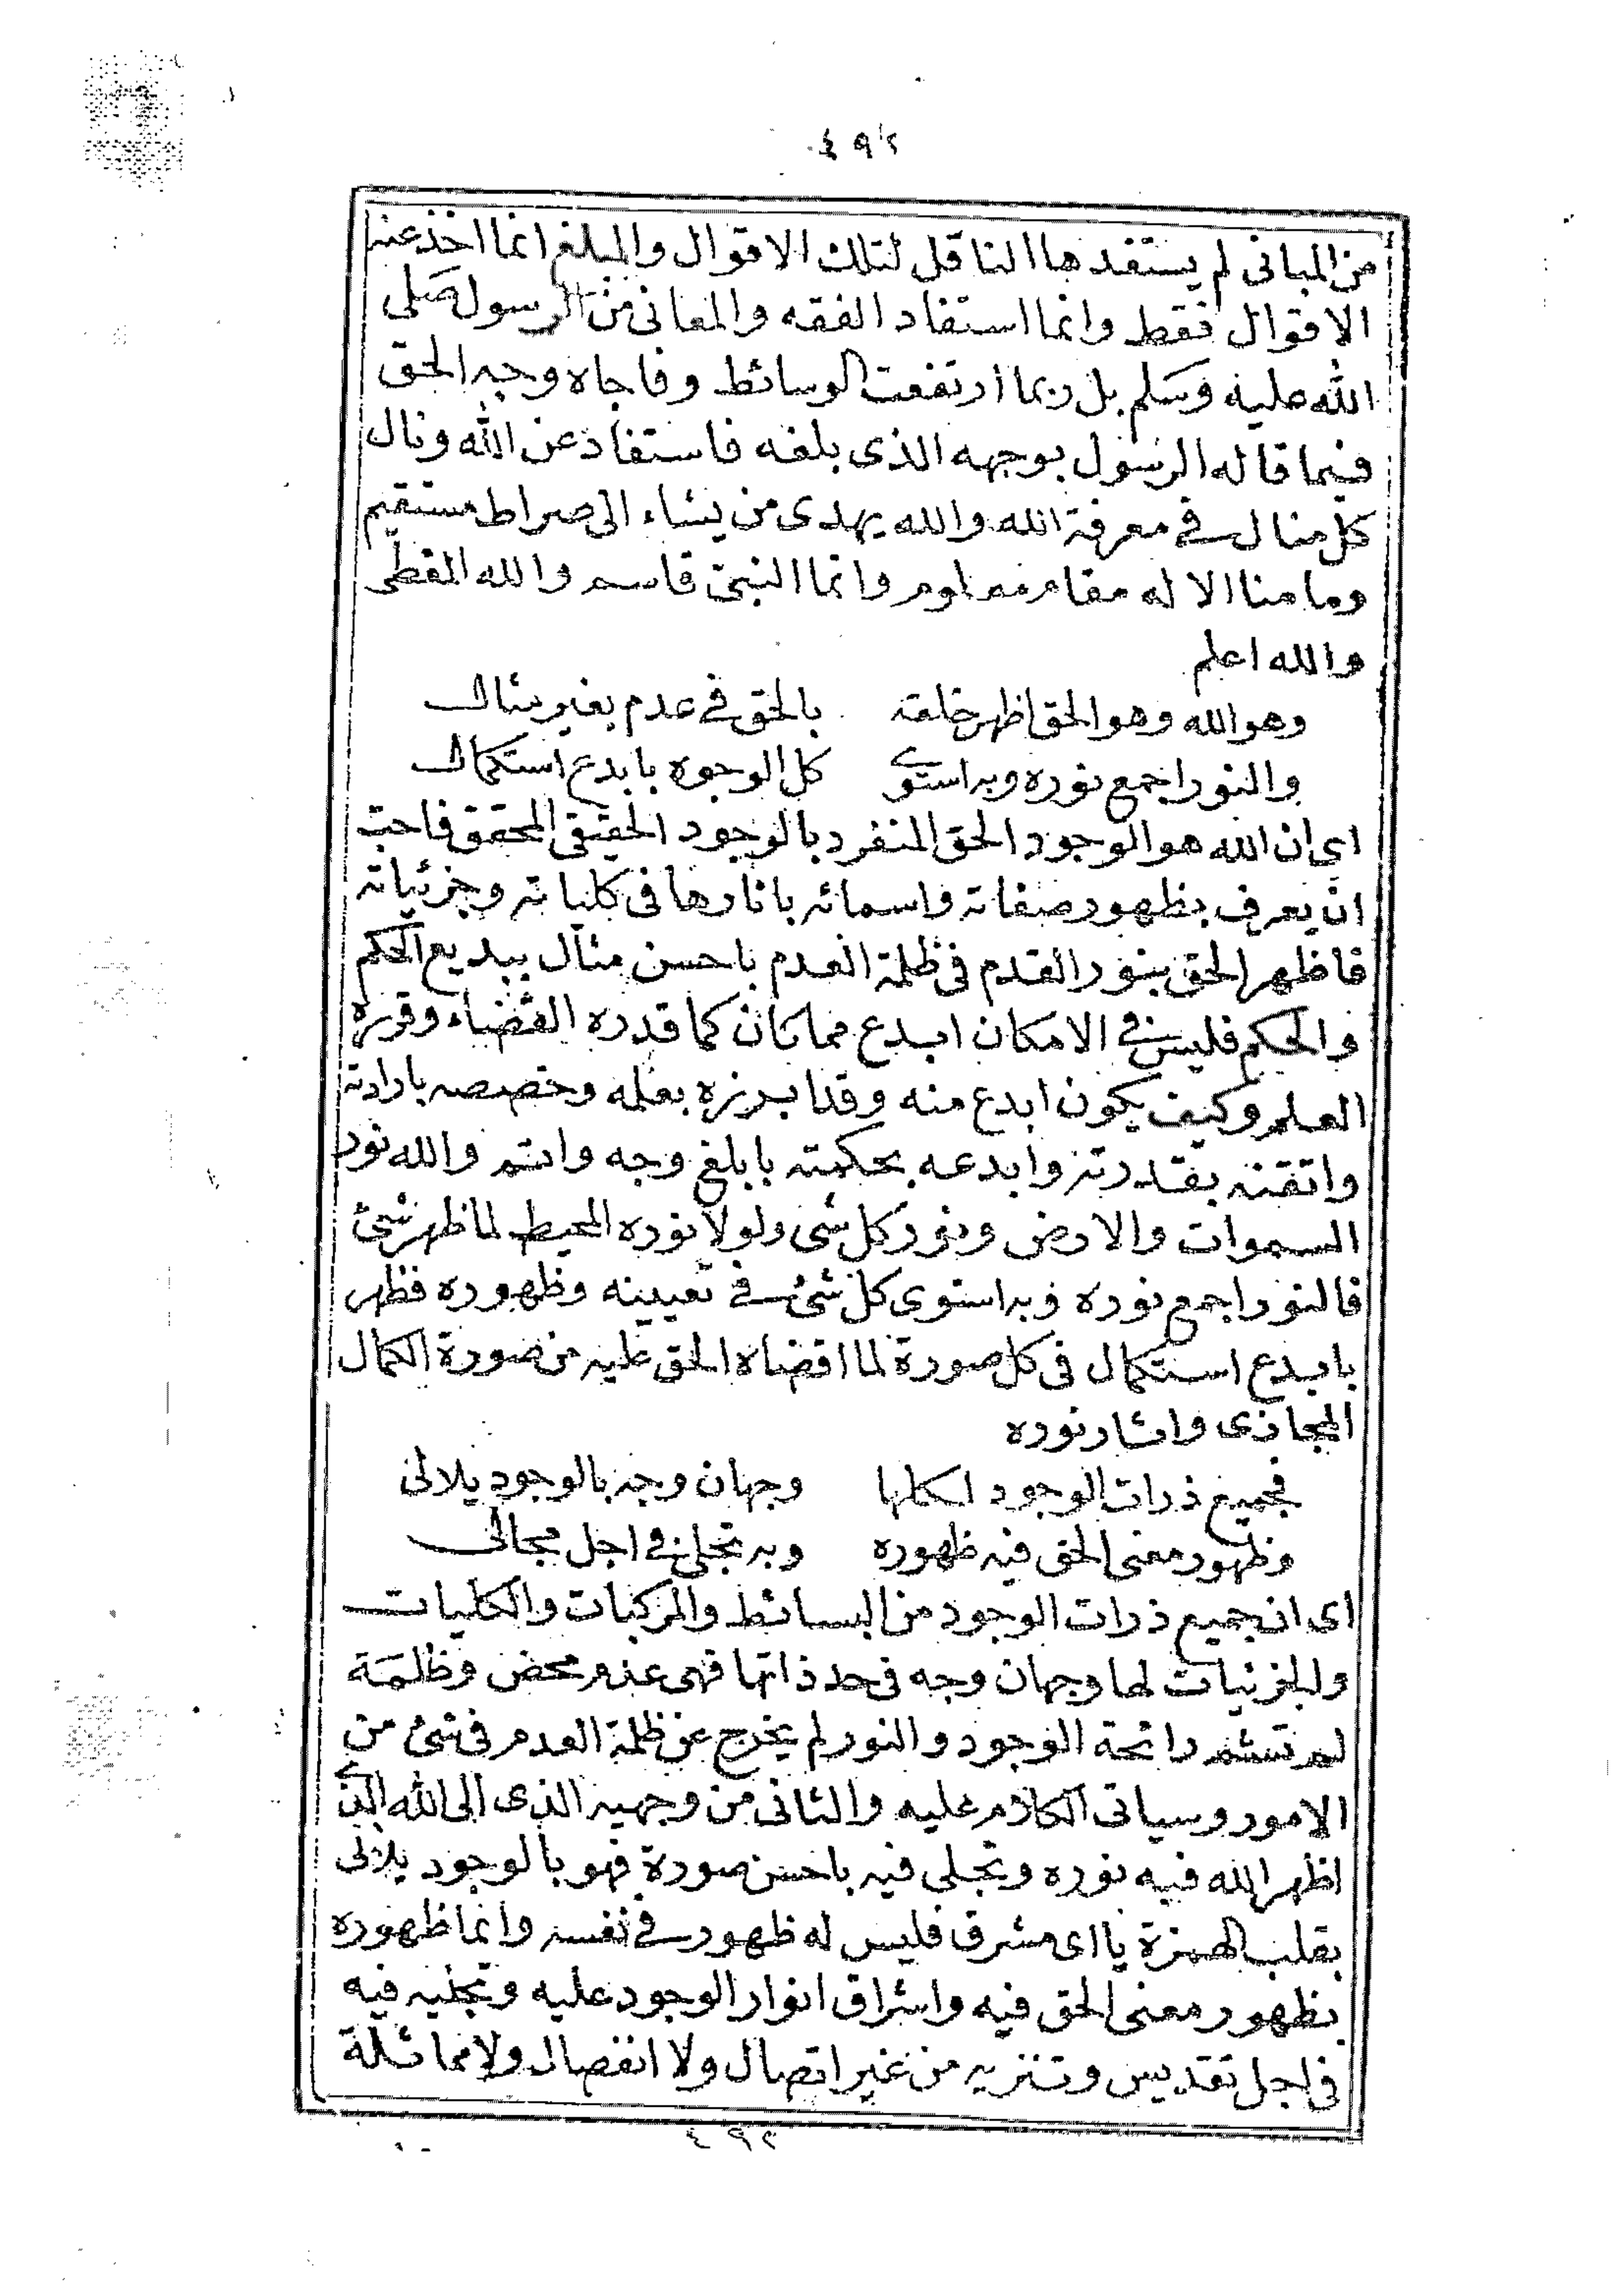 ٤٩٢
من المبانى لم يستفدها الناقل لتلك الاقوال والمبلغ انما اخذ عنه
الاقوال فقط وانما استفاد الفقه والمعانى من الرسول صلى
الله عليه وسلم بل ربما ارتفعت الوسائط وفاجاه وجه الحق
فيما قاله الرسول بوجهه الذى بلغه فاستفاد عن الله ونال
كل منال فى معرفة الله والله يهدى من يشاء الى صراط مستقيم
وما منا الا له مقام معلوم وانما النبى قاسم والله المعطى
والله اعلم
وهو الله وهو الحق اظهر خلقه بالحق فى عدم بغير مثال
والنور اجمع نوره وبه استوى كل الوجوه بابدع استكمال
اى ان الله هو الوجود الحق المنفرد بالوجود الحقيقى المحقق فاحب
ان يعرف بظهور صفاته واسمائه باثارها فى كلياته وجزئياته
فاظهر الحق بنور القدم فى ظلمة العدم باحسن مثال ببديع الحكم
والحكم فليس فى الامكان ابدع مما كان كما قدره القضاء وقرره
العلم وكيف يكون ابدع منه وقد ابرزه بعلمه وخصصه بارادته
واتقنه بقدرته وابدعه بحكمته بابلغ وجه واتم والله نور
السموات والارض ونور كل شى ولولا نوره المحيط لما ظهر شئ
فالنور اجمع نوره وبه استوى كل شئ فى تعيينه وظهوره فظهر
بابدع استكمال فى كل صورة لما اقضاه الحق عليه من صورة الكمال
المجازى واثار نوره
فجميع ذرات الوجود لكلها وجهان وجه بالوجود يلالى
وظهور معنى الحق فيه ظهوره وبه تجلى فى اجل مجالى
اى ان جميع ذرات الوجود من البسائط والمركبات والكليات
والجزئيات لها وجهان وجه فى حد ذاتها فهى عدم محض وظلمة
لم تشم رائحة الوجود والنور لم يخرج عن ظلمة العدم فى شئ من
الامور وسياتى الكلام عليه والثانى من وجهيه الذى الى الله الذى
اظهر الله فيه نوره وتجلى فيه باحسن صورة فهو بالوجود يلالى
بقلب الهمزة يا اى مشرق فليس له ظهور فى نفسه وانما ظهوره
بظهور معنى الحق فيه واشراق انوار الوجود عليه وتجليه فيه
فى اجل تقديس وتنزيه من غير اتصال ولا انفصال ولا مماثلة
٤٩٢